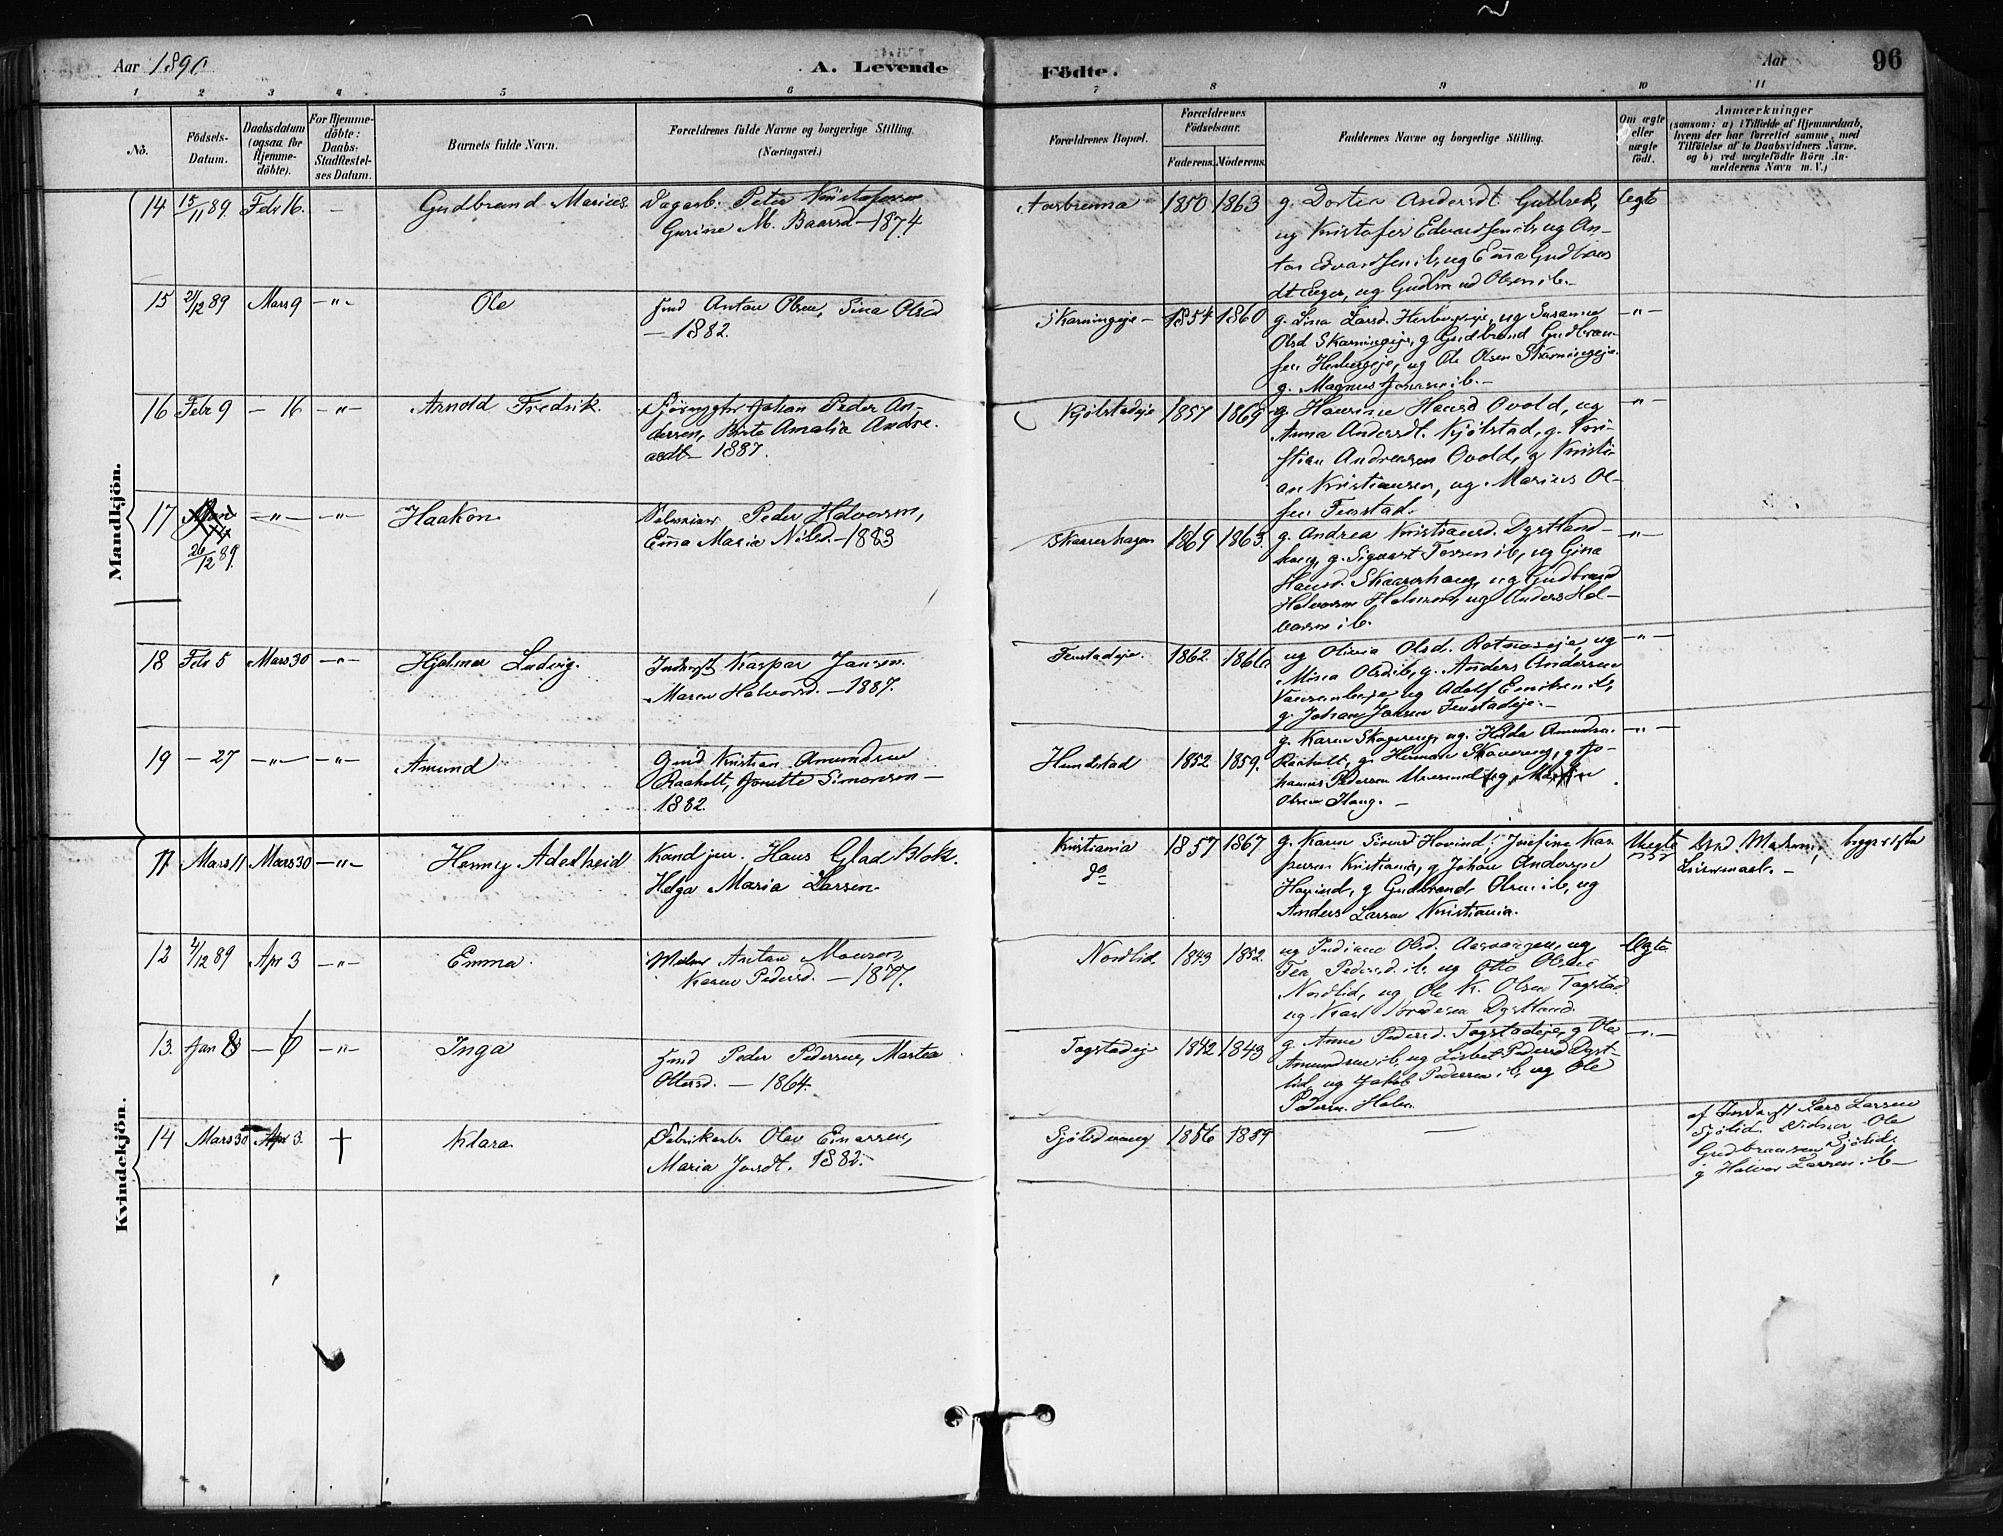 Aar 1890
A. Levende
Födte.
Aar
96
1 2 3 4 5 6 7 8 9 10 11
No.
Födsels-
Datum.
Daabsdatum
(ogsaa for
Hjemme-
döbte).
For Hjemme-
döbte:
Daabs-
Stadfestel-
ses Datum.
Barnets fulde Navn.
Forældrenes fulde Navne og borgerlige Stilling.
(Næringsvei.)
Forældrenes Bopæl.
Forældrenes
Födselsaar.
Faderens.
Moderens.
Faddernes Navne og borgerlige Stilling.
Om ægte
eller
uægte
födt.
Anmærkninger
(saasom: a) i Tilfælde af Hjemmedaab,
hvem der har forrettet samme, med
Tilföielse af to Daabsvidners Navne,
og b) ved uægtefödte Börn An-
melderens Navn m. V.)
Mandkjön.
14 15/11 89. Febr 16. - Gudbrand Marius. Dagarb. Peter Kristofersen
Gurine M. Baarsd - 1874
Aasbrenna 1850 1863 g. Dortea Andersdt Gulbek,
ug Kristofer Edvardsen ib, ug An-
ton Edvardsen ib, ug Emma Gudbrans
dt Eger, ug Gudm ud Olsen ib.-
Ægte
15 21/12 89 Mars 9 -"- Ole Jmd Anton Olsen, Sina Olsd
- 1882.
Skarningeje - 1854 1860 g. Lina Larsd. ug Susanna
Olsd Skarningeje, g Gudbrand Gudbran-
sen ug Ole Olsen Skarningeje
g. Magnus Jonasen ib.-
-"-
16 Febr 9 - 16 -"- Arnold Fredrik. Johan Peder An-
dersen, Berte Amalia Andre-
asdt - 1887.
Kjölstadeje 1857 1869 g. Haurine Hansd Ovold, ug
Anna Andersdt. Kjölstad, g. Kri-
stian Andreasen Ovold, g Kristi-
an Kristiansen, ug Marius Ol-
sen Fenstad.
-"-
17 26/12 89. -"- -"- Haakon Peder Halvorsen,
Emma Maria Nilsd. - 1883
Skaarerhagen 1869 1863. g. Andrea Kristiansd. Dystland-
haug, g. Sigvart Tossen ib, ug Gina
Hansd. Skaarerhaug, ug Gudbrand
Halvorsen Holmen, ug Anders Hal-
vorsen ib.
-"-
18 Febr 5 Mars 30 -"- Hjalmar Ludvig. Inderst Kaspar Jansen
Maren Halvorsd. - 1887.
Fenstadeje. 1862. 1866. ug Olivia Olsd. Rotneseje, ug
Mina Olsd ib, g. Anders Andersen
ug Adolf Eriksen ib,
g. Johan Jansen Fenstadeje.-
-"-
19 - 27 -"- -"- Amund Gmd Kristian Amundsen
Raaholt, Jonette Simonsen -
1882.
Hundstad 1852 1859. g. Karen Skogereng, ug Hilda Amundsen
Raaholt, g. Herman g Jo-
hannes Pedersen
Olsen Haug. -
-"-
Kvindekjön.
11 Mars 11 Mars 30 -"- Henny Adelheid Kand jur. Hans Glad Blok.
Helga Maria Larsen.
Kristiania
do
1857 1867 g. Karen Hovind, Josefine Kas
persen Kristiania, g Johan Andersen
Hovind, g Gudbrand Olsen ib, ug
Anders Larsen Kristiania.
Uægte
12 4/12 89 Apr 3 -"- Emma Anton Monsen,
Karen Pedersd. - 1877.
Nordlid. 1849 1852. ug Indiana Olsd. Aasvangen, ug
Tea Pedersd. ib. ug Otto Olsen
Nordlid, ug Ole K. Olsen Togstad
ug Karl Dystland.
Ægte
13. Jan 8 - 6 -"- Inga Jmd Peder Pedersen, Martea
Olersd. - 1864.
Togstadeje 1842 1843 g. Anne Pedersd. Togstadeje, g Ole
Amundsen ib, ug Lisbet Pedersd Dyst-
lid, ug Jakob Pedersen ib, ug Ole
Pedersen Holm.
-"-
14 Mars 30 Apr 3. † Klara Fabrikarb. Olav Einersen,
Maria Jensdt. 1882.
Sjölidvang 1856 1859 -
af Inderst Lars Larsen
Sjölid. Vidner Ole
Gudbransen Sjölid,
g Halvor Larsen ib -